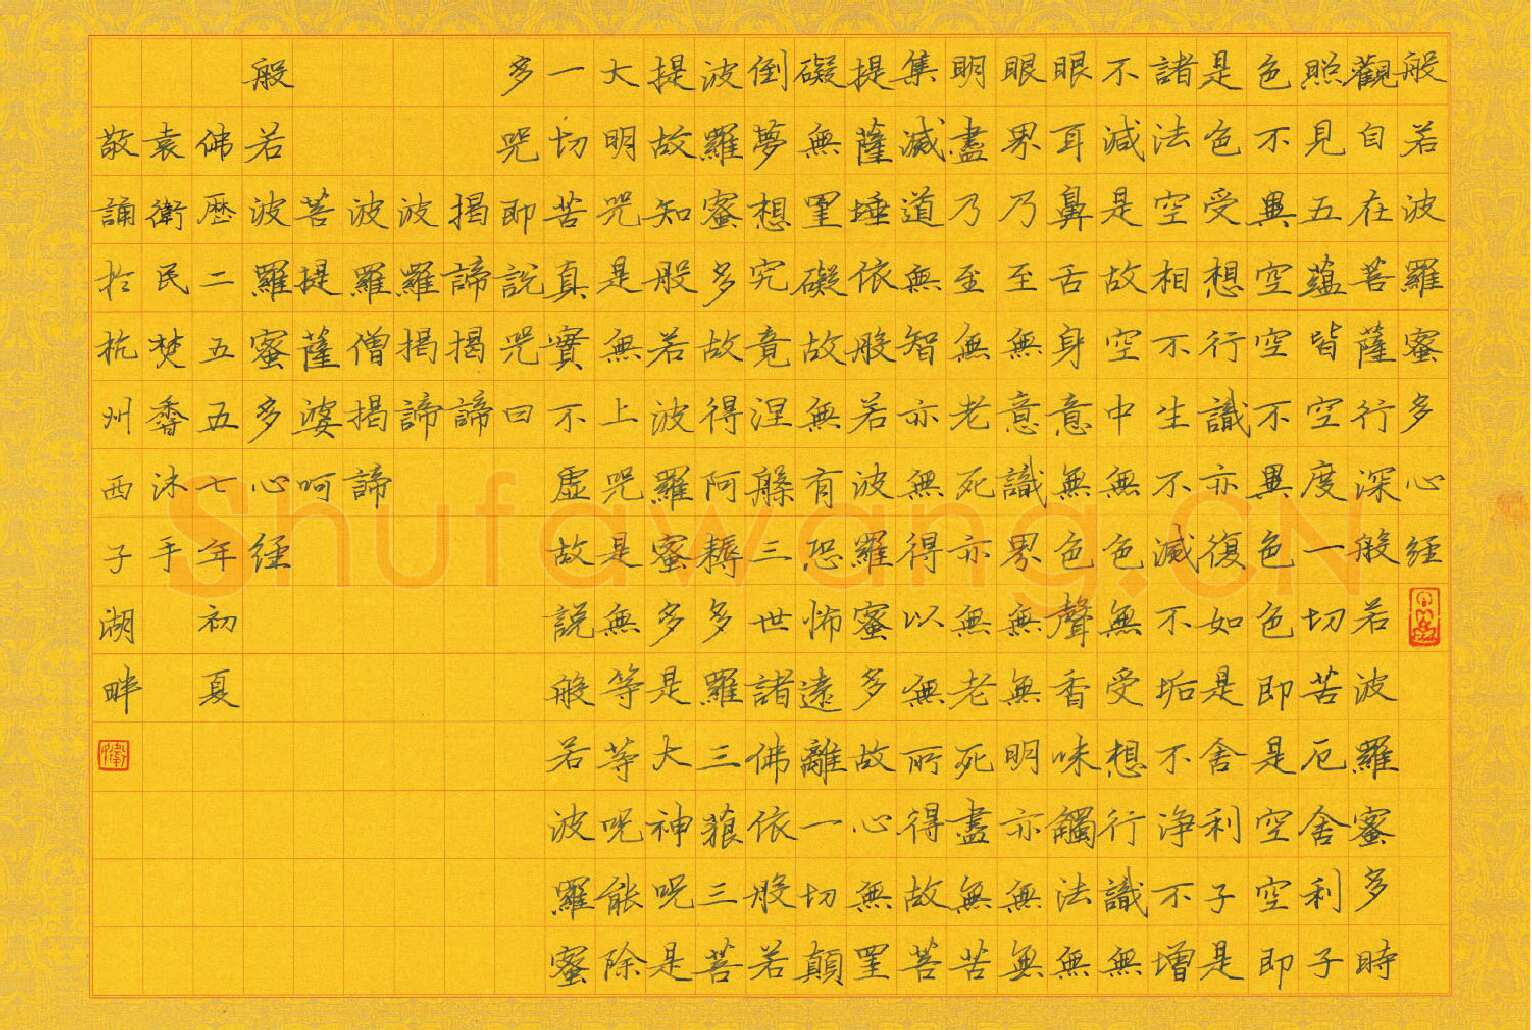 般若波羅蜜多心經
觀自在菩薩行深般若波羅蜜多時
照見五蘊皆空度一切苦厄舍利子
色不異空空不異色色即是空空即
是色受想行識亦復如是舍利子是
諸法空相不生不滅不垢不淨不增
不減是故空中無色無受想行識無
眼耳鼻舌身意無色聲香味觸法無
眼界乃至無意識界無無明亦無無
明盡乃至無老死亦無老死盡無苦
集滅道無智亦無得以無所得故菩
提薩埵依般若波羅蜜多故心無罣
礙無罣礙故無有恐怖遠離一切顛
倒夢想究竟涅槃三世諸佛依般若
波羅蜜多故得阿耨多羅三藐三菩
提故知般若波羅蜜多是大神咒是
大明咒是無上咒是無等等咒能除
一切苦真實不虛故說般若波羅蜜
多咒即說咒曰
揭諦揭諦
波羅揭諦
波羅僧揭諦
菩提薩婆呵
般若波羅蜜多心經
佛歷二五五七年初夏
袁衛民焚香沐手
敬誦於杭州西子湖畔
Shufawang.CN